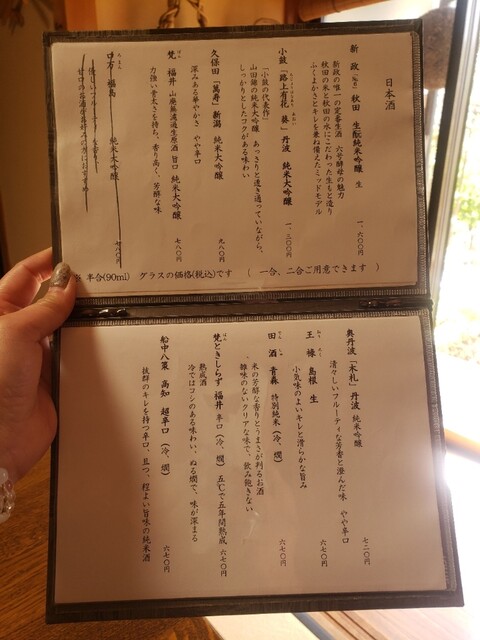 日本酒
新 政「亜麻猫」 秋田 生酛純米吟醸 生 一、六〇〇円
新政の唯一の定番生酒 六号酵母の魅力
秋田の米と秋田の水にこだわった生もと造り
ふくよかさとキレを兼ね備えたミッドモデル
小鼓「路上有花 葵」 丹波 純米大吟醸 一、三〇〇円
「小鼓の代表作」
山田錦の純米大吟醸 あっさりと透き通っていながら、
しっかりとしたコクがある味わい
久保田「萬寿」 新潟 純米大吟醸 九八〇円
深みある華やかさ やや辛口
梵 福井 山廃無濾過生原酒 旨口 純米大吟醸 七八〇円
力強い骨太さを持ち、香り高く、芳醇な味
ロ万 福島 純米大吟醸 七八〇円
優しいフルーティーな香り
※ 半合(90ml) グラスの価格(税込)です ( 一合、二合ご用意できます )
奥丹波「木札」 丹波 純米吟醸 七二〇円
清々しいフルーティな芳香と澄んだ味 やや辛口
王祿 島根 生 六七〇円
小気味のよいキレと滑らかな旨み
田酒 青森 特別純米（冷、燗） 六七〇円
米の芳醇な香りとうまさが判るお酒
雑味のないクリアな味で、飲み飽きない
梵ときしらず 福井 辛口（冷 燗） 五℃で五年間熟成 六七〇円
熟成酒
冷ではコシのある味わい、ぬる燗で、味が深まる
船中八策 高知 超辛口（冷、燗） 六七〇円
抜群のキレを持つ辛口、且つ、程よい旨味の純米酒